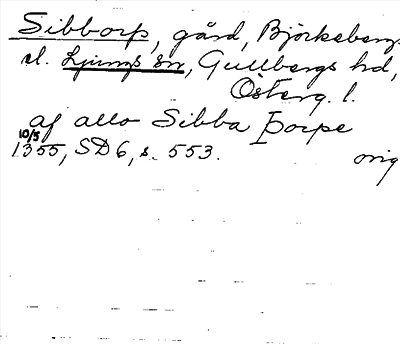 Sibborp, gård, Björkebergs
el. Ljungs sn, Gullbergs hd,
Österg. l.
af allo Sibba Þorpe
10/5
1355, SD 6, s. 553. orig